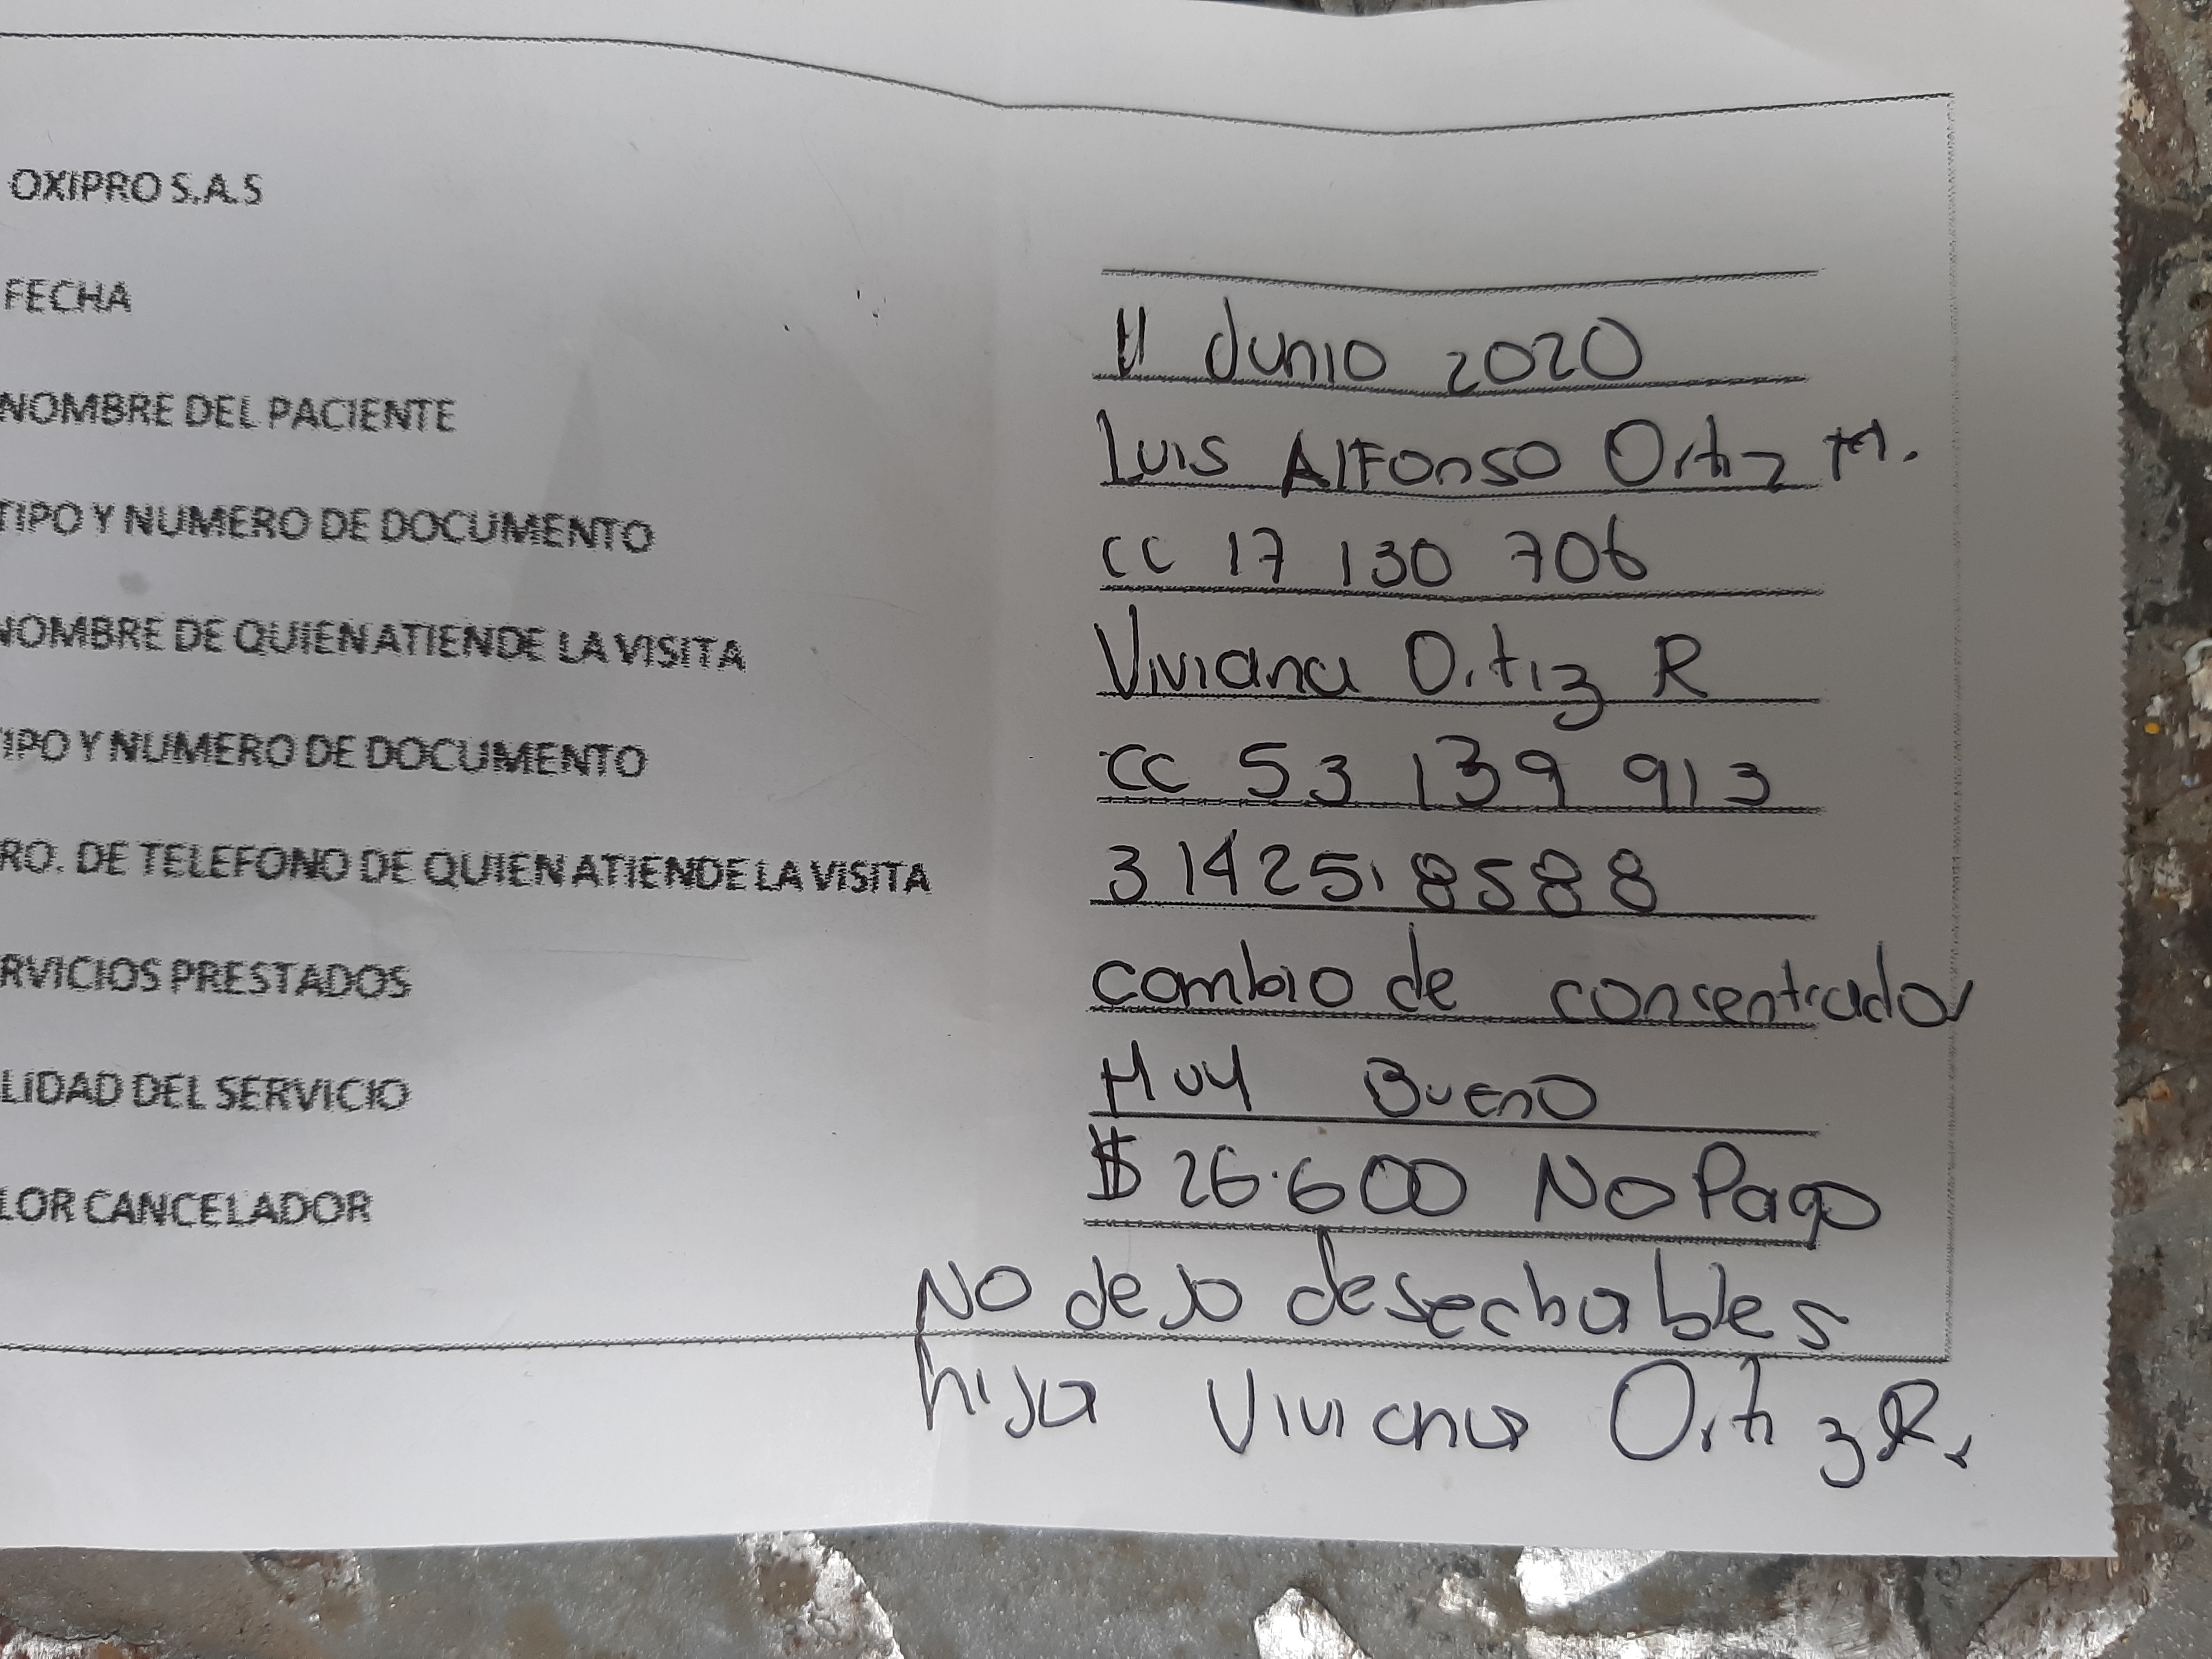 OXIPRO S.A.S
FECHA 11 Junio 2020
NOMBRE DEL PACIENTE Luis Alfonso Ortiz M.
TIPO Y NUMERO DE DOCUMENTO CC 17 130 706
NOMBRE DE QUIEN ATIENDE LA VISITA Viviana Ortiz R
IPO Y NUMERO DE DOCUMENTO CC 53 139 913
RO. DE TELEFONO DE QUIEN ATIENDE LA VISITA 3142518588
RVICIOS PRESTADOS cambio de consentrador
LIDAD DEL SERVICIO Muy Bueno
LOR CANCELADOR $ 26.600 No Pago
No dejo desechables
hija Viviana Ortiz R.